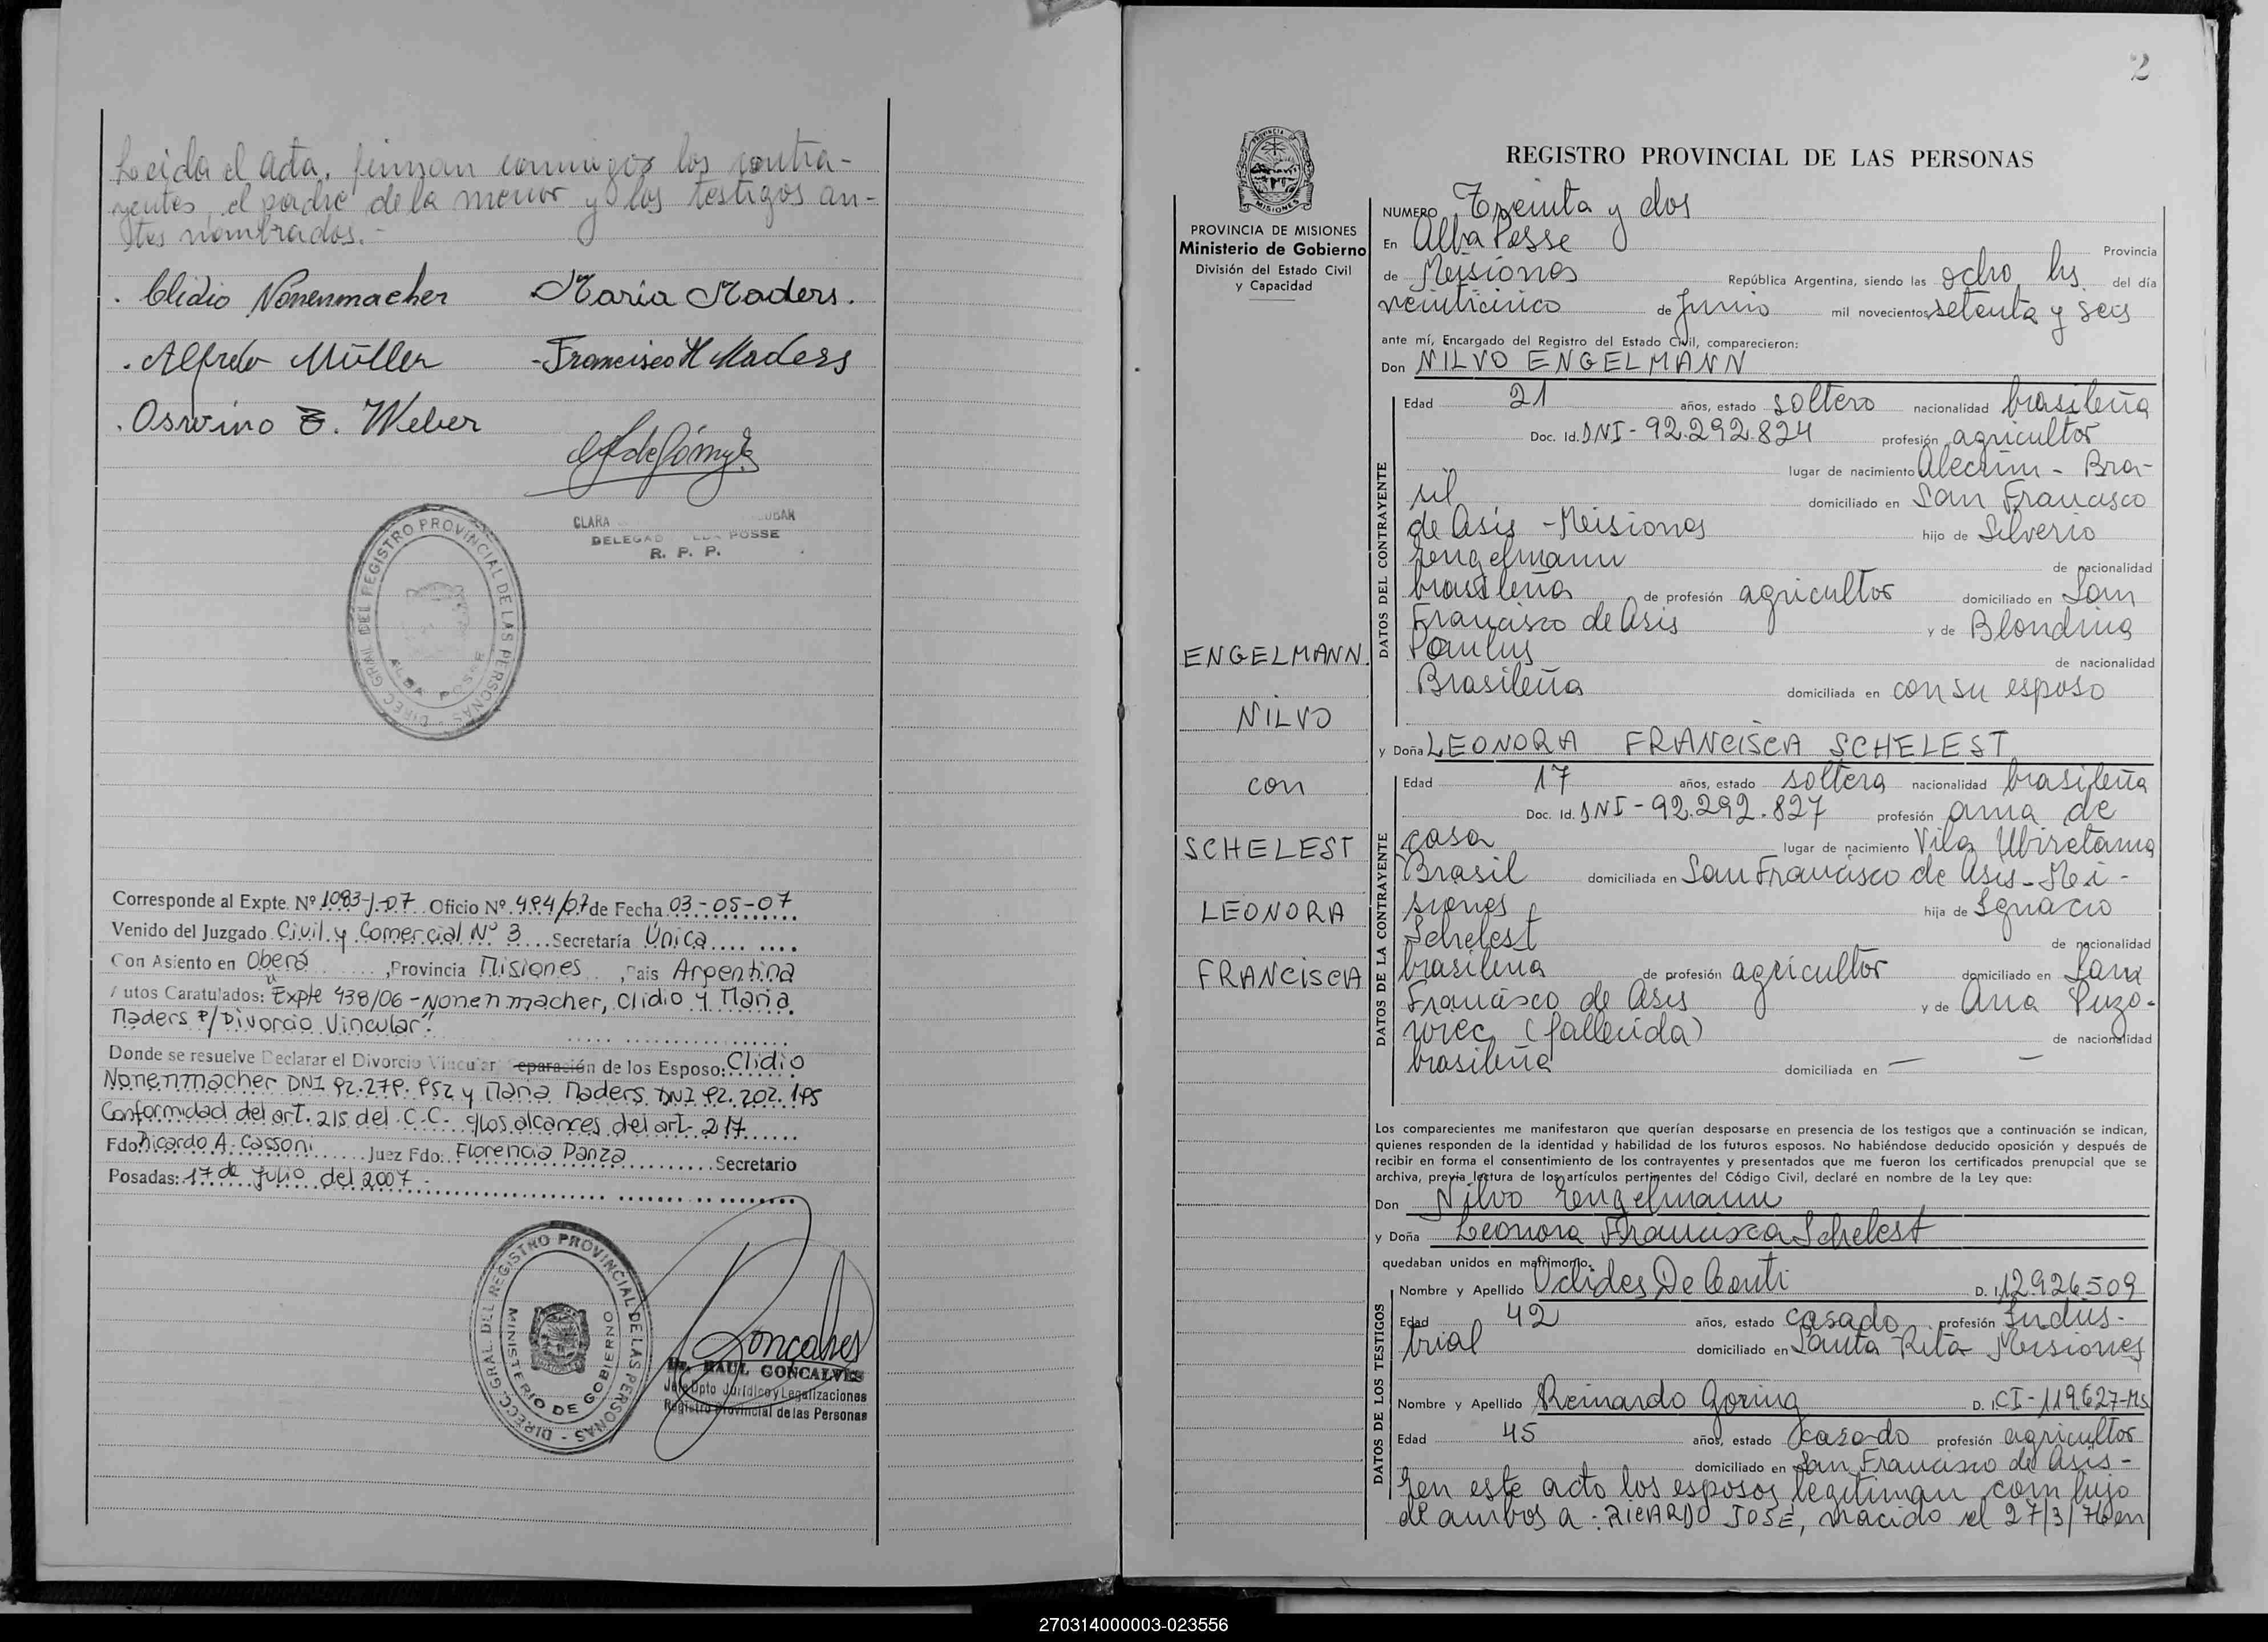 Leeida el acta, firman conmigos los contra-
yentes, el padre de la menor y los testigos an-
tes nombrados.-
. Clidio Nonenmacher
Maria Maders.
. Alfredo Müller
-Francisco H Maders
. Osvino E. Weber
CLARA
DELEGAD POSSE
R. P. P.
DIREC. GRAL DEL REGISTRO PROVINCIAL DE LAS PERSONAS
ALBA POSSE
Corresponde al Expte. Nº 1083-J-07 Oficio Nº 494/07 de Fecha 03-05-07
Venido del Juzgado Civil y Comercial Nº 3 Secretaría Única
Con Asiento en Oberá, Provincia Misiones, Pais Argentina
Autos Caratulados: "Expte 938/06 - Nonenmacher, Clidio y Maria
Maders P/ Divorcio Vincular".
Donde se resuelve Declarar el Divorcio Vincular Separación de los Esposo: Clidio
Nonenmacher DNI 92.279.952 y Maria Maders DNI 92.202.195
Conformidad del art. 215 del C.C. c/los alcances del art. 217
Fdo: Ricardo A. Cassoni Juez Fdo: Florencia Panza Secretario
Posadas: 17 de Julio del 2007.-
DIRECC. GRAL. DEL REGISTRO PROVINCIAL DE LAS PERSONAS
MINISTERIO DE GOBIERNO
Goncalves
Dr. RAUL GONCALVES
Jefe Dpto Jurídico y Legalizaciones
Registro Provincial de las Personas
2
PROVINCIA DE MISIONES
Ministerio de Gobierno
División del Estado Civil
y Capacidad
ENGELMANN
NILVO
con
SCHELEST
LEONORA
FRANCISCA
REGISTRO PROVINCIAL DE LAS PERSONAS
NUMERO Treinta y dos
En Alba Posse Provincia
de Misiones República Argentina, siendo las ocho hs. del día
veinticinco de Junio mil novecientos setenta y seis
ante mí, Encargado del Registro del Estado Civil, comparecieron:
Don NILVO ENGELMANN
DATOS DEL CONTRAYENTE
Edad 21 años, estado soltero nacionalidad brasileña
Doc. Id. DNI-92.292.824 profesión agricultor
lugar de nacimiento Alecrim - Bra-
sil domiciliado en San Francisco
de Asis - Misiones hijo de Silverio
Engelmann de nacionalidad
brasileña de profesión agricultor domiciliado en San
Francisco de Asis y de Blondina
Paulus de nacionalidad
Brasileña domiciliada en con su esposo
y Doña LEONORA FRANCISCA SCHELEST
DATOS DE LA CONTRAYENTE
Edad 17 años, estado soltera nacionalidad brasileña
Doc. Id. DNI-92.292.827 profesión ama de
casa lugar de nacimiento Vila Ubiretama
Brasil domiciliada en San Francisco de Asis - Mi-
siones hija de Ignacio
Schelest de nacionalidad
brasileña de profesión agricultor domiciliado en San
Francisco de Asis y de Ana Puzo-
wrec (fallecida) de nacionalidad
brasileña domiciliada en — —
Los comparecientes me manifestaron que querían desposarse en presencia de los testigos que a continuación se indican,
quienes responden de la identidad y habilidad de los futuros esposos. No habiéndose deducido oposición y después de
recibir en forma el consentimiento de los contrayentes y presentados que me fueron los certificados prenupcial que se
archiva, previa lectura de los artículos pertinentes del Código Civil, declaré en nombre de la Ley que:
Don Nilvo Engelmann
y Doña Leonora Francisca Schelest
quedaban unidos en matrimonio.
DATOS DE LOS TESTIGOS
Nombre y Apellido Oclides De Conti D. I. 12.926.509
Edad 42 años, estado casado profesión Indus-
trial domiciliado en Santa Rita Misiones
Nombre y Apellido Reinardo Goring D. I. CI-119.627-Ms
Edad 45 años, estado casado profesión agricultor
domiciliado en San Francisco de Asis-
En este acto los esposos legitiman com hijo
de ambos a : RICARDO JOSE, nacido el 27/3/76 en
270314000003-023556